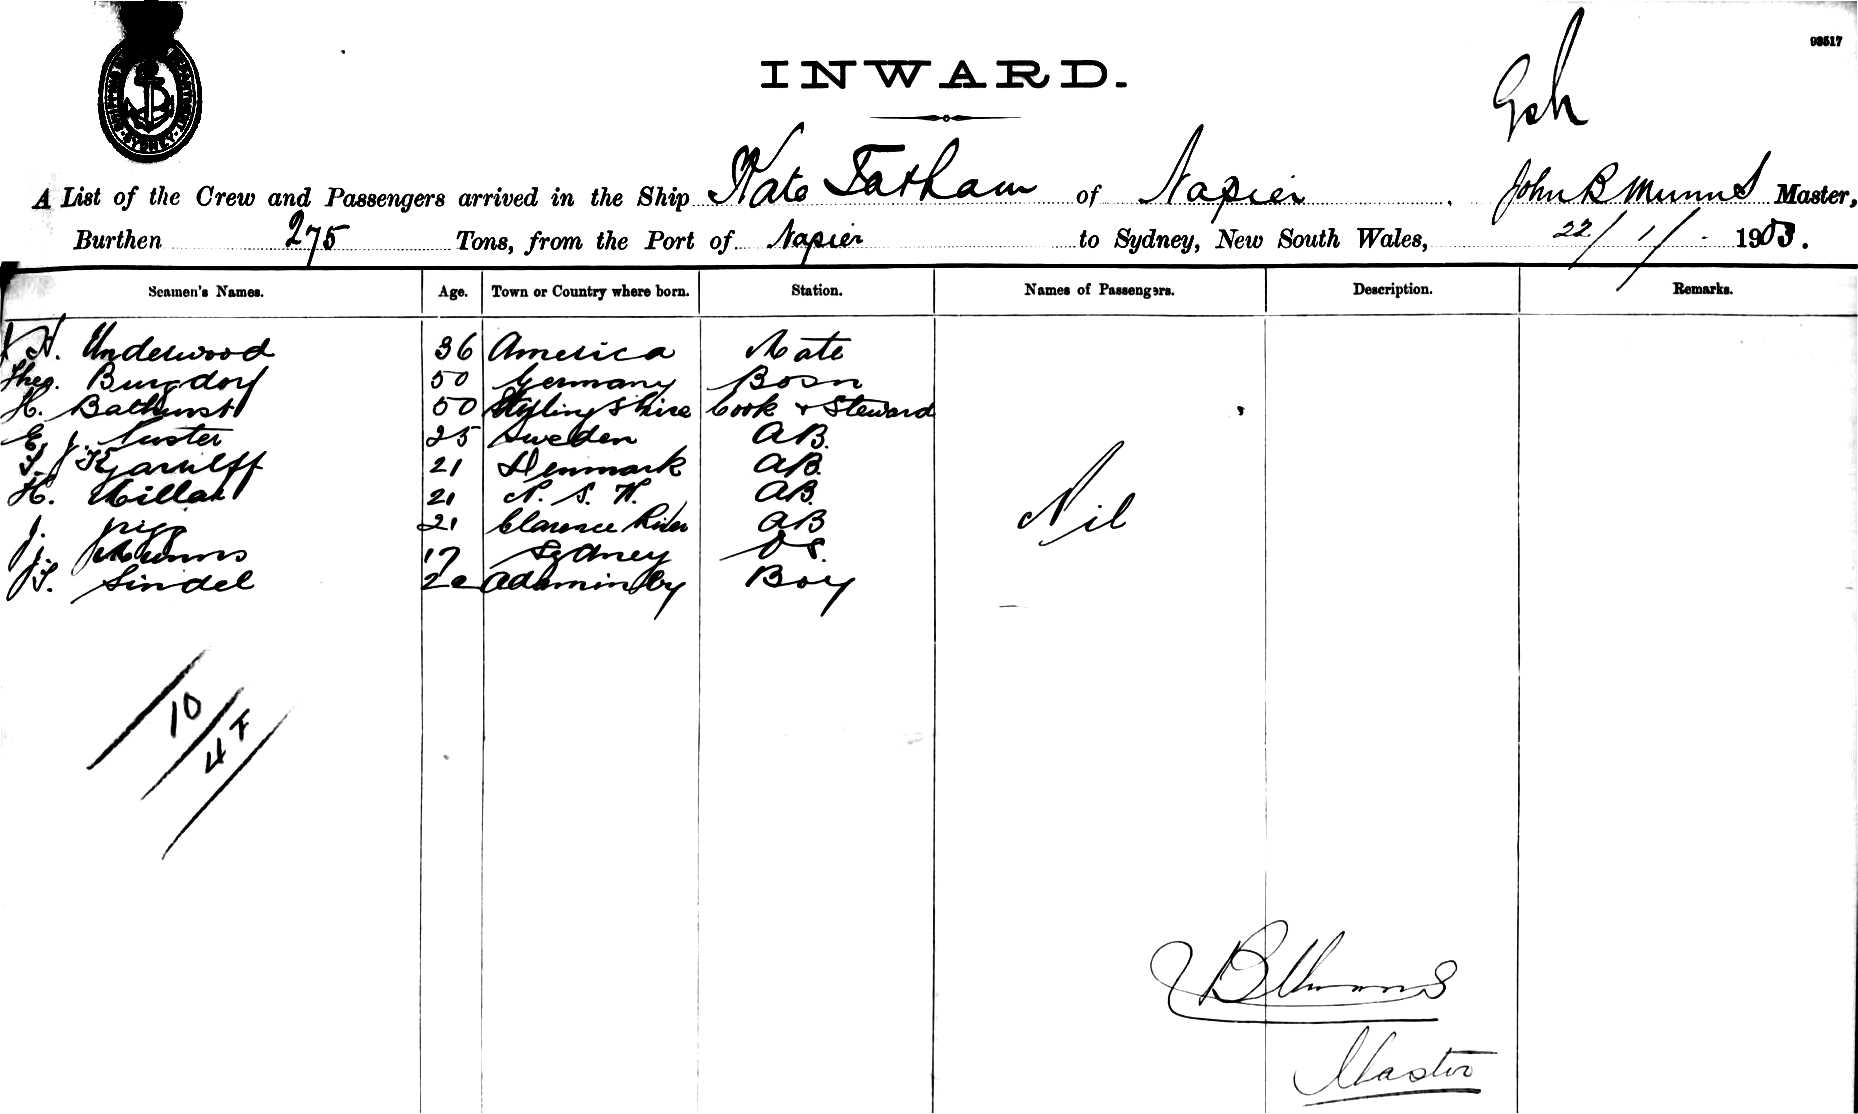 98517
INWARD.
Gsh
A List of the Crew and Passengers arrived in the Ship Kate Tatham of Napier. John B Munns Master,
Burthen 275 Tons, from the Port of Napier to Sydney, New South Wales, 22/1/- 1903.
Seamen's Names. Age. Town or Country where born. Station. Names of Passengers. Description. Remarks.
H. Underwood 36 America Mate
Theo. Burgdorf 50 Germany Bosn
H. Bathurst 50 Stirlingshire Cook & Steward
E. J. Nuster 25 Sweden AB.
21 Denmark AB.
H. Millar 21 N. S. W. AB.
J. 21 Clarence River AB
J. Munns 17 Sydney OS.
J. Sindel 20 Adaminaby Boy
Nil
10/47
JB Munns
Master